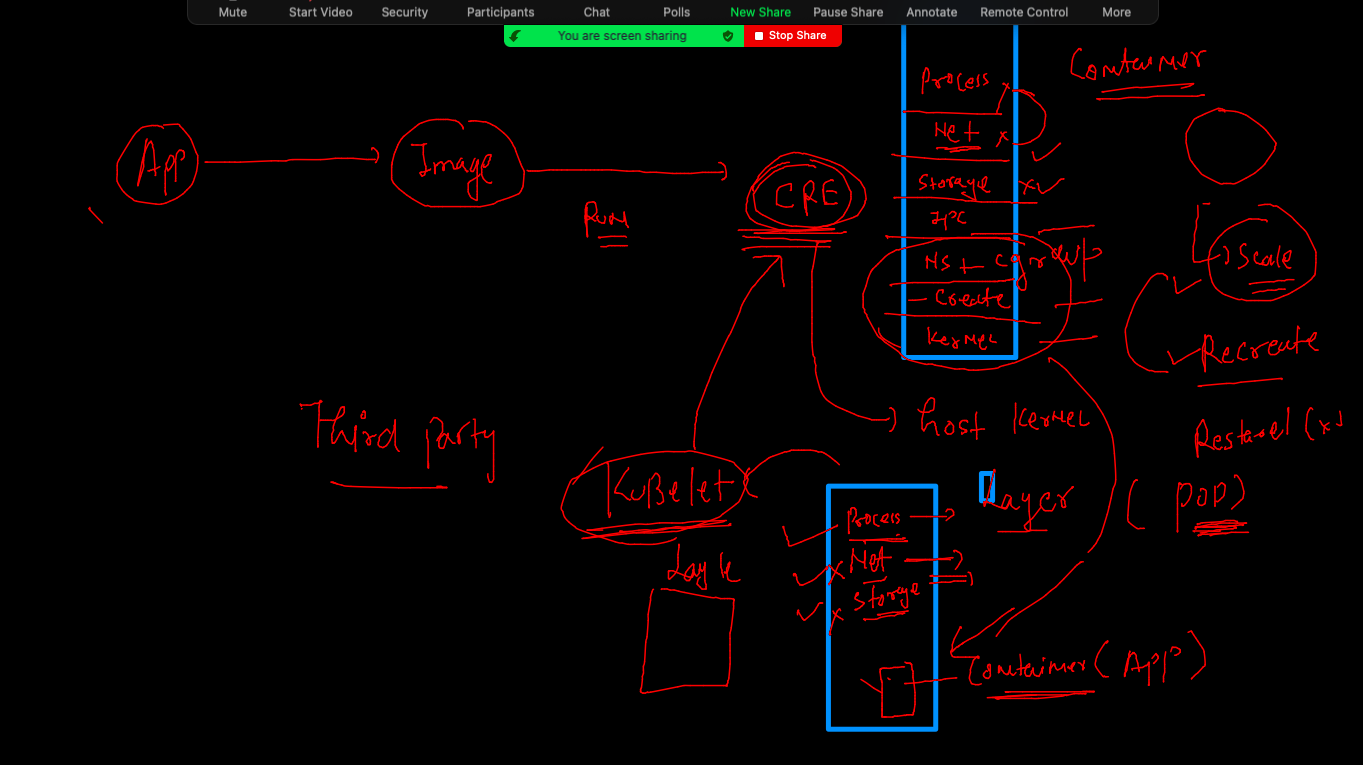 Mute Start Video Security Participants Chat Polls New Share Pause Share Annotate Remote Control More
You are screen sharing Stop Share
Container
Process
Net x
Storage x
IPC
NS + cgroup
Create
Kernel
App
Image
Run
CRE
Scale
Recreate
host Kernel
Third party
KuBelet
Layer
(POD)
Process
Net
Storge
Container (App)